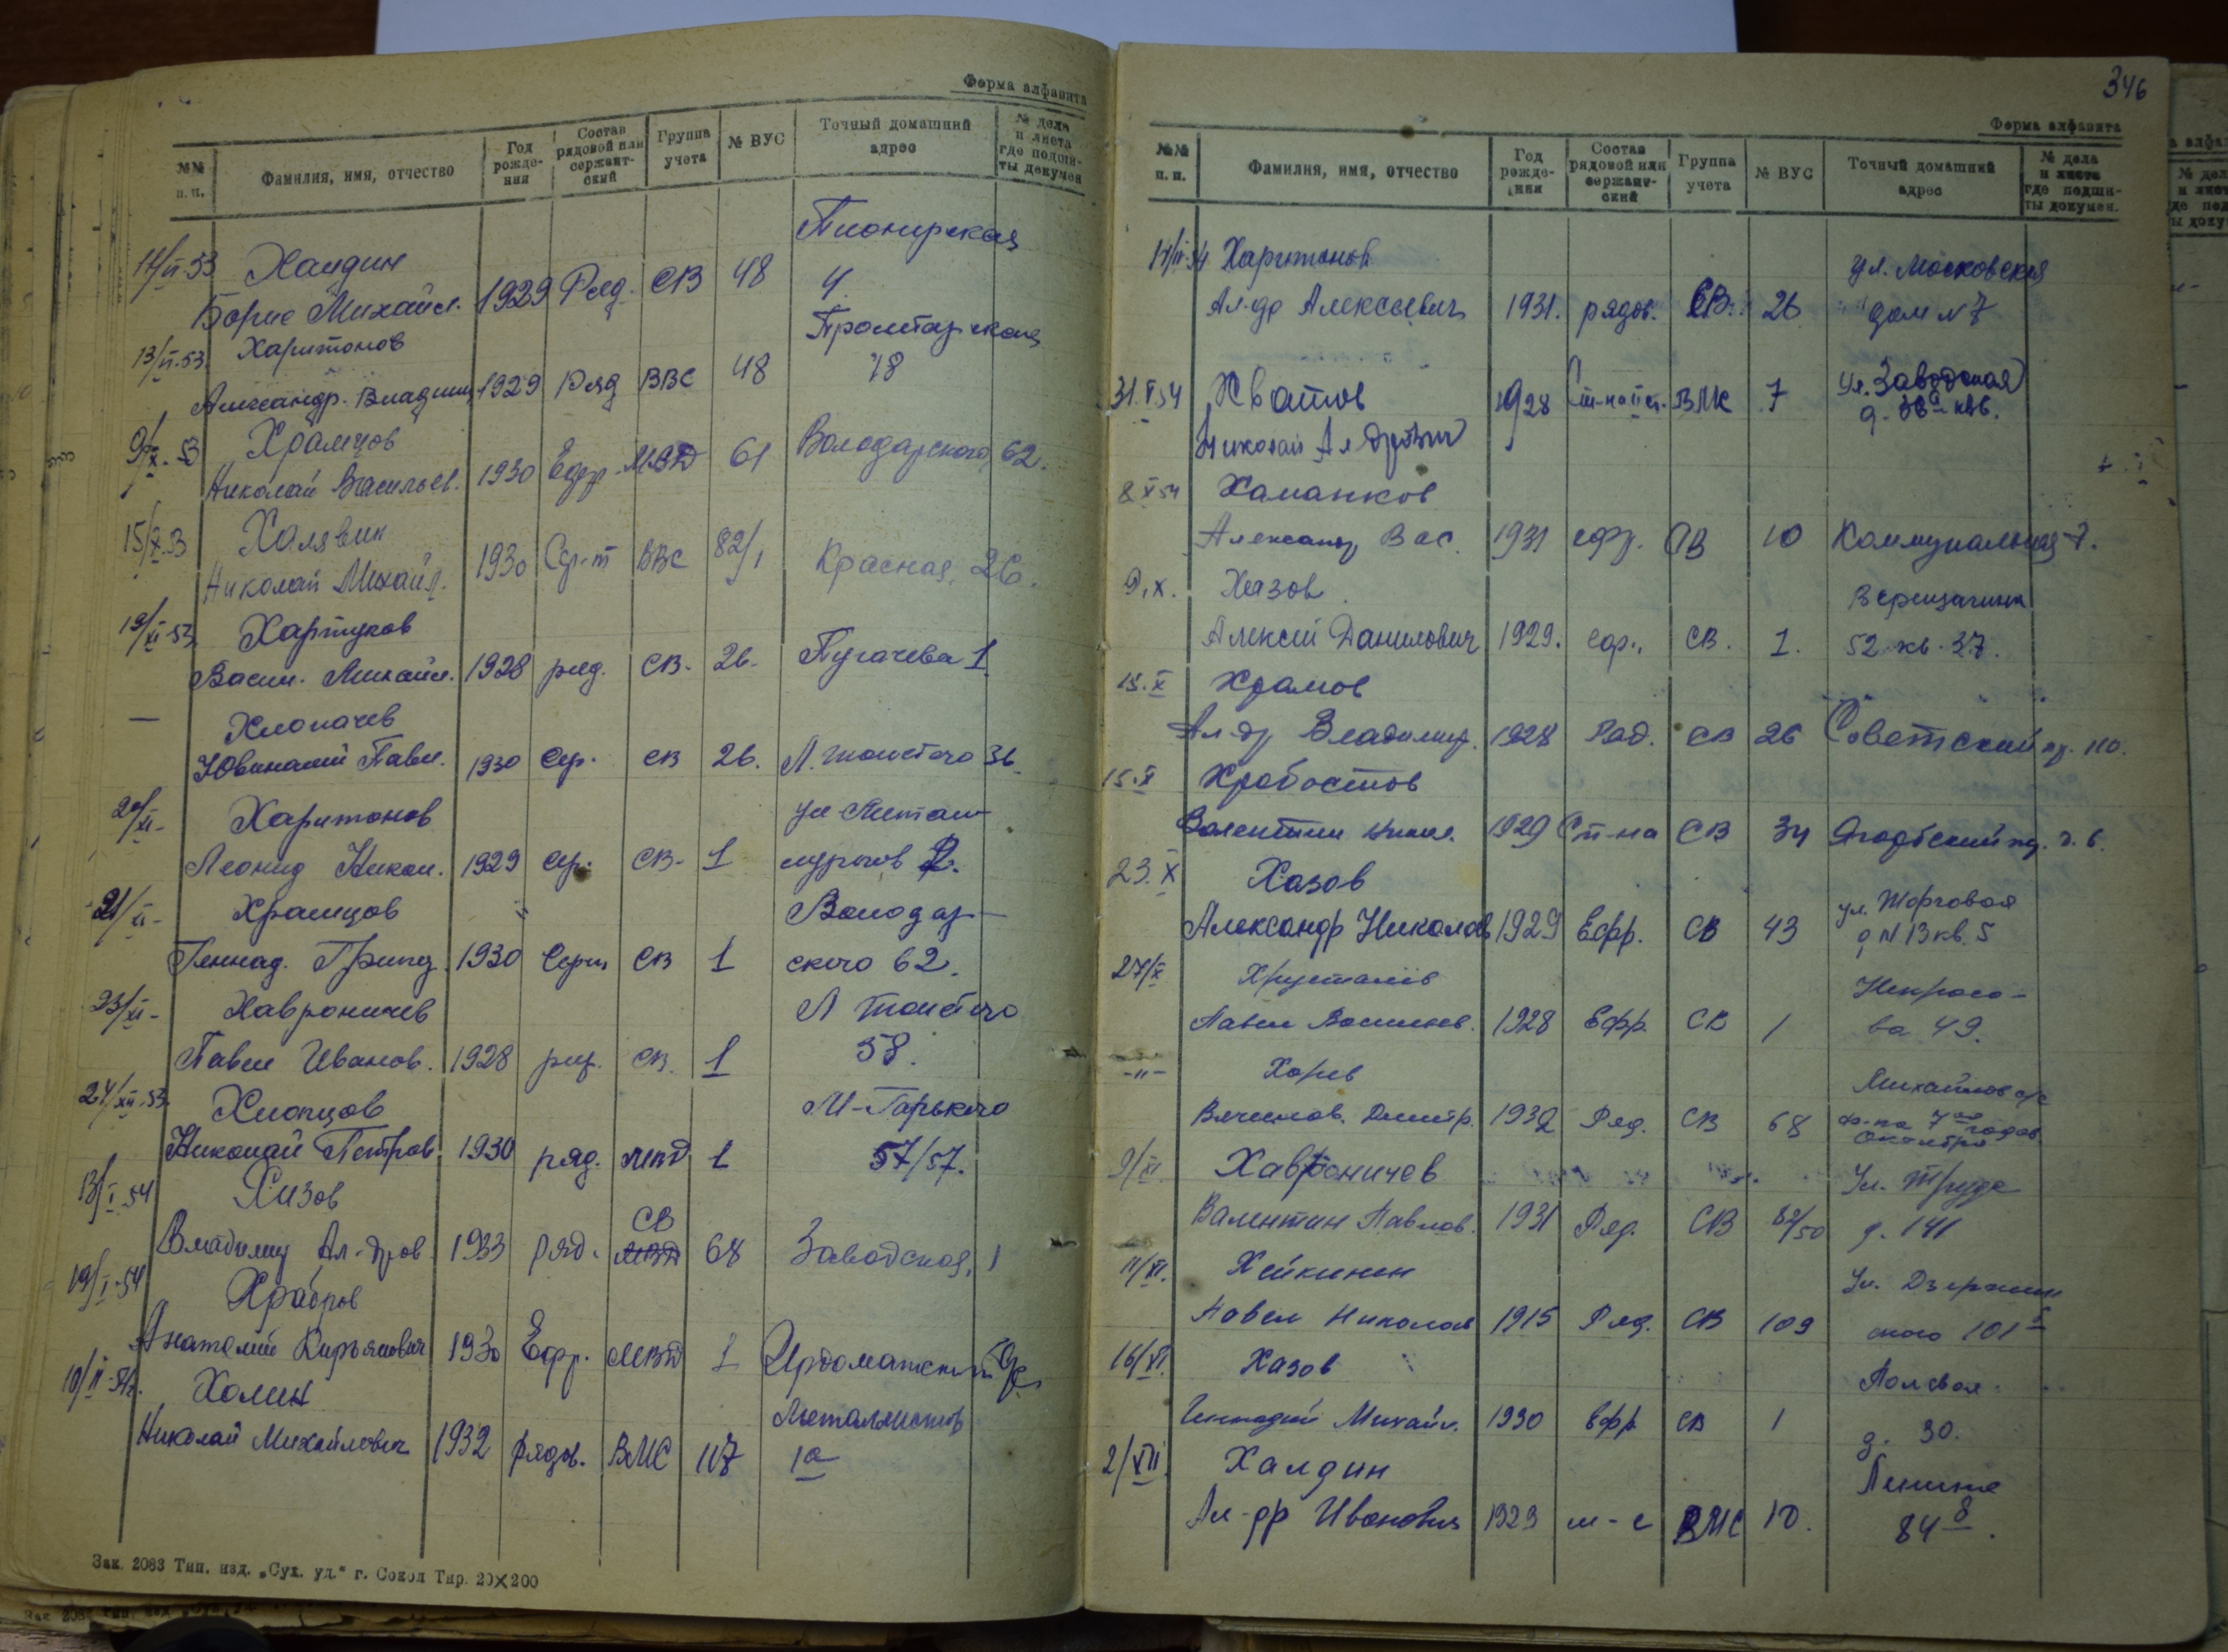 Форма алфавита
№№ п. п.
Фамилия, имя, отчество
Год рожде-ния
Состав рядовой или сержант-ский
Группа учета
№ ВУС
Точный домашний адрес
№ дела и листа где подши-ты докумен
14/VI-53 Халдин Пионерская
Борис Михайл. 1929 Ряд. СВ 48 4
13/VI-53 Харитонов Пролетарская
Александр. Владим. 1929 Ряд ВВС 48 78
9/X-53 Храмцов
Николай Васильев. 1930 Ефр. МВД 61 Володарского, 62.
15/X-53 Халявин
Николай Михайл. 1930 Сер-т ВВС 82/1 Красная, 26.
19/XI-53 Хартуков
Васил. Михайл. 1928 ряд. СВ- 26- Пугачева 1
— Хлопачев
Ювиналий Павл. 1930 Сер. СВ 26. Л. Толстого 36
20/XI- Харитонов ул Метал-
Леонид Никол. 1929 Сер. СВ- 1 лургов 2.
21/XI- Храмцов Володар-
Геннад. Григ. 1930 Серж СВ 1 ского 62.
23/XI- Хавроничев Л Толстого
Павел Иванов. 1928 ряд. СВ. 1 58.
24/XII-53 Хлопцов М-Горького
Николай Петров. 1930 ряд. МВД 1 57/57.
13/I-54 Хизов СВ
Владимир Ал-дров. 1933 ряд. МВД 68 Заводская, 1
19/I-54 Храбров
Анатолий Кирьянович 1930 Ефр. МВД 1 Ирдоматский с/с
10/II-54г. Холин Металлистов
Николай Михайлович 1932 Рядов. ВМС 117 1а
Зак. 2083 Тип. изд. „Сух. уд." г. Сокол Тир. 20×200
346
Форма алфавита
№№ п. п.
Фамилия, имя, отчество
Год рожде-ния
Состав рядовой или сержант-ский
Группа учета
№ ВУС
Точный домашний адрес
№ дела и листа где подши-ты докумен.
17/II-54 Харитонов ул. Московская
Ал-др Алексеевич 1931. рядов. СВ. 26 дом №7
31.V.54 Хватов 1928 ВМС 7 ул. Заводская
Николай Ал-дрович
8 X 54 Хаманков
Александр Вас. 1931 ефр. СВ 10 Коммунальная 7.
9.X. Хазов Верещагина
Алексей Данилович 1929. СВ. 1. 52 кв. 37.
15.X Храмов
Ал-др Владимир. 1928 Ряд. СВ 26 Советский пр. 110.
15.X Хробостов
Валентин Никол. 1929 Ст-на СВ 34 Ягорбский пер. д. 6.
23.X Хазов ул. Торговая
Александр Николаев 1929 Ефр. СВ 43 д N 13 кв. 5
27/X Хрусталев Некрасо-
Павел Васильев. 1928 Ефр. СВ 1 ва 49.
-"- Харев Михайлов с/с
Вячеслов. Дмитр. 1932 Ряд. СВ 68
9/XI Хавроничев Ул. Труда
Валентин Павлов. 1931 Ряд. СВ 82/50 д. 141
11/XI. Хейкинен Ул. Дзержин
Павел Николаев 1915 Ряд. СВ 109 ского 101
16/XI. Хазов Полевая
Геннадий Михайл. 1930 Ефр СВ 1 д. 30.
2/XII Халдин Ленина
Ал-др Иванович 1929 м-с ВМС 10. 84